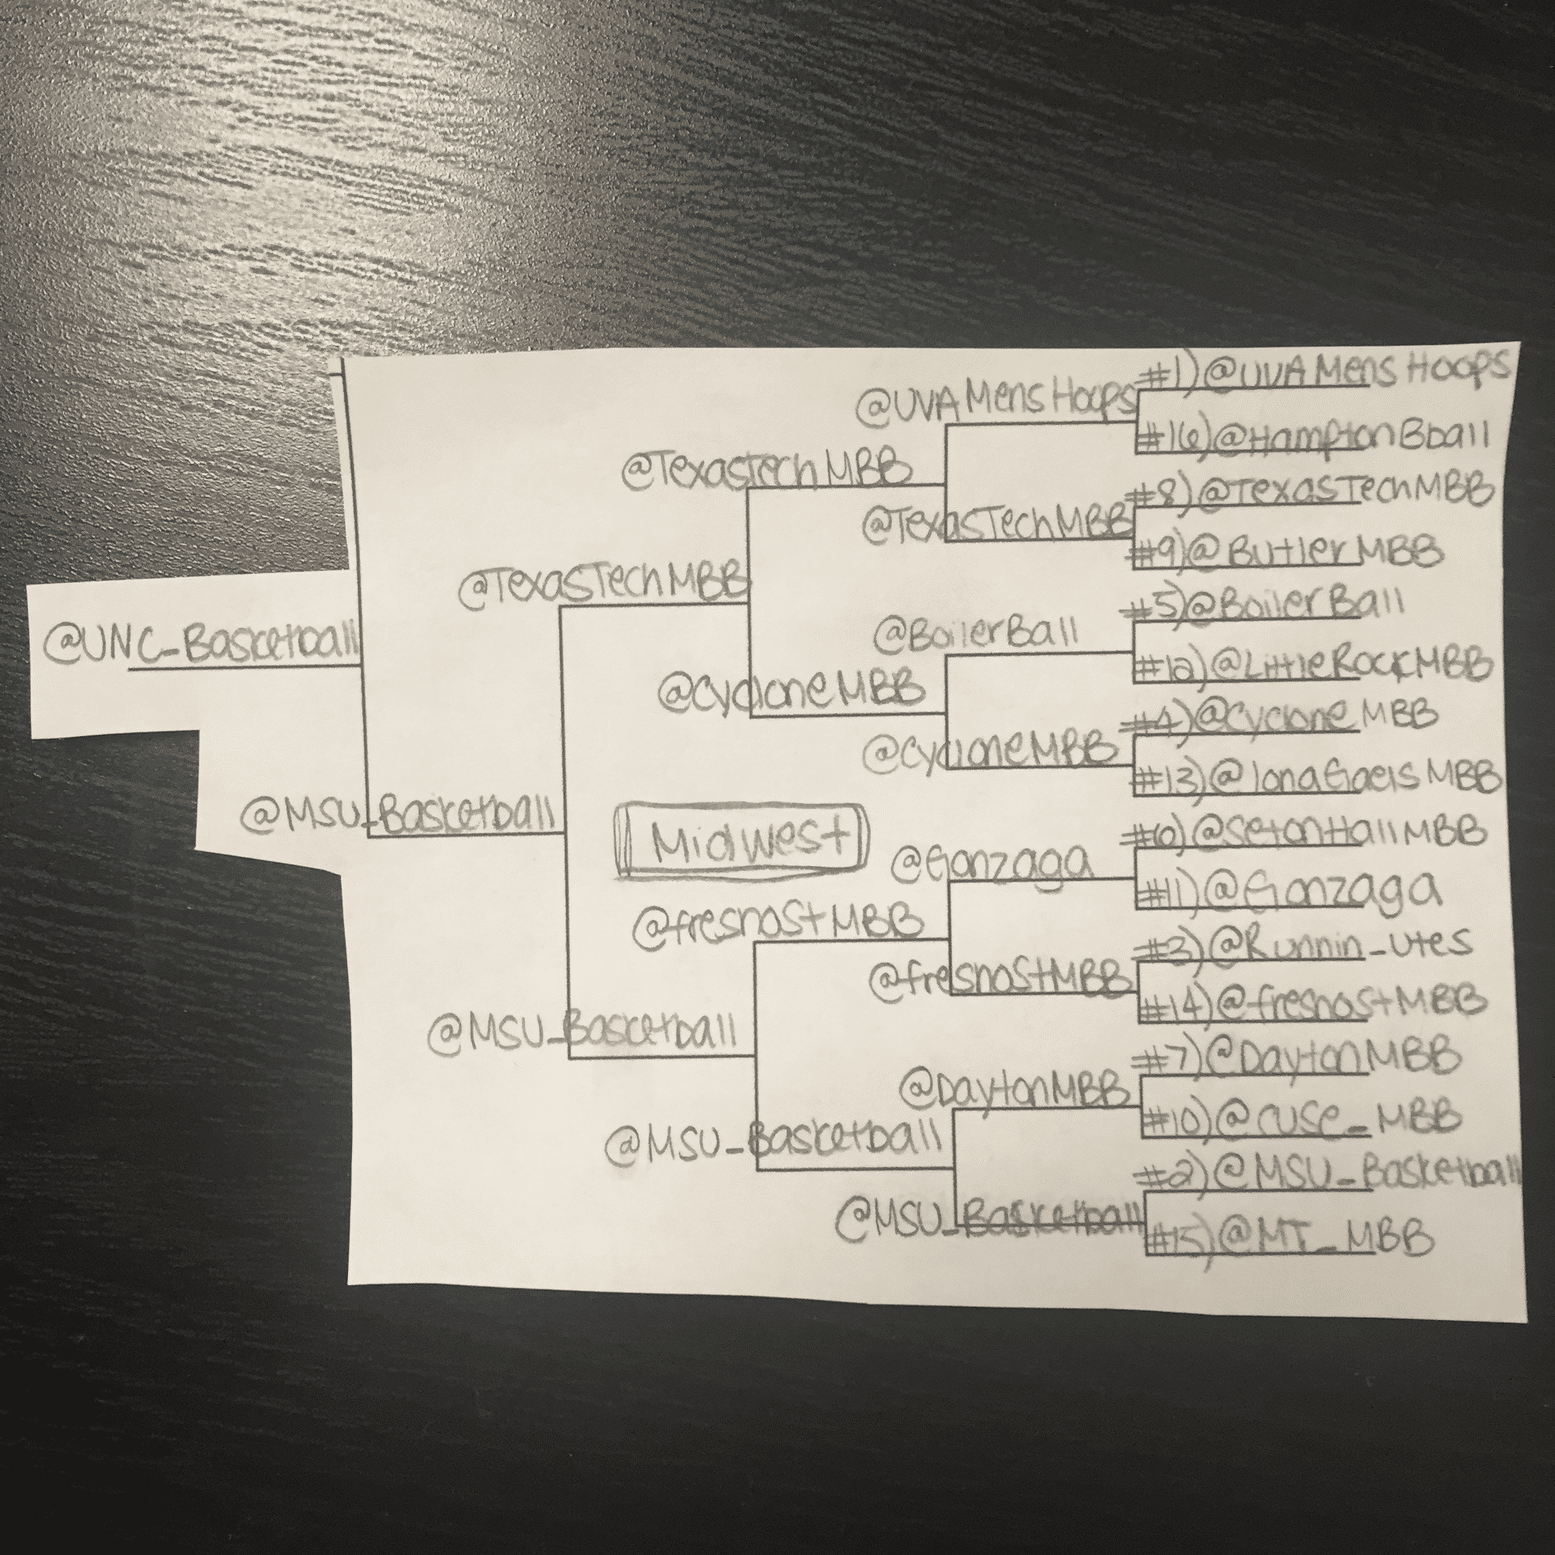 #1)@UVAMensHoops
@UVAMensHoops
#16)@HamptonBball
@TexasTechMBB
#8)@TexasTechMBB
@TexasTechMBB
#9)@ButlerMBB
@TexasTechMBB
#5)@BoilerBall
@BoilerBall
#12)@LittleRockMBB
@CycloneMBB
#4)@CycloneMBB
@CycloneMBB
#13)@IonaGaelsMBB
@UNC_Basketball
@MSU_Basketball
Midwest
#6)@SetonHallMBB
@Gonzaga
#11)@Gonzaga
@fresnoStMBB
#3)@Runnin_Utes
@fresnoStMBB
#14)@fresnoStMBB
@MSU_Basketball
#7)@DaytonMBB
@DaytonMBB
#10)@Cuse_MBB
@MSU_Basketball
#2)@MSU_Basketball
@MSU_Basketball
#15)@MT_MBB